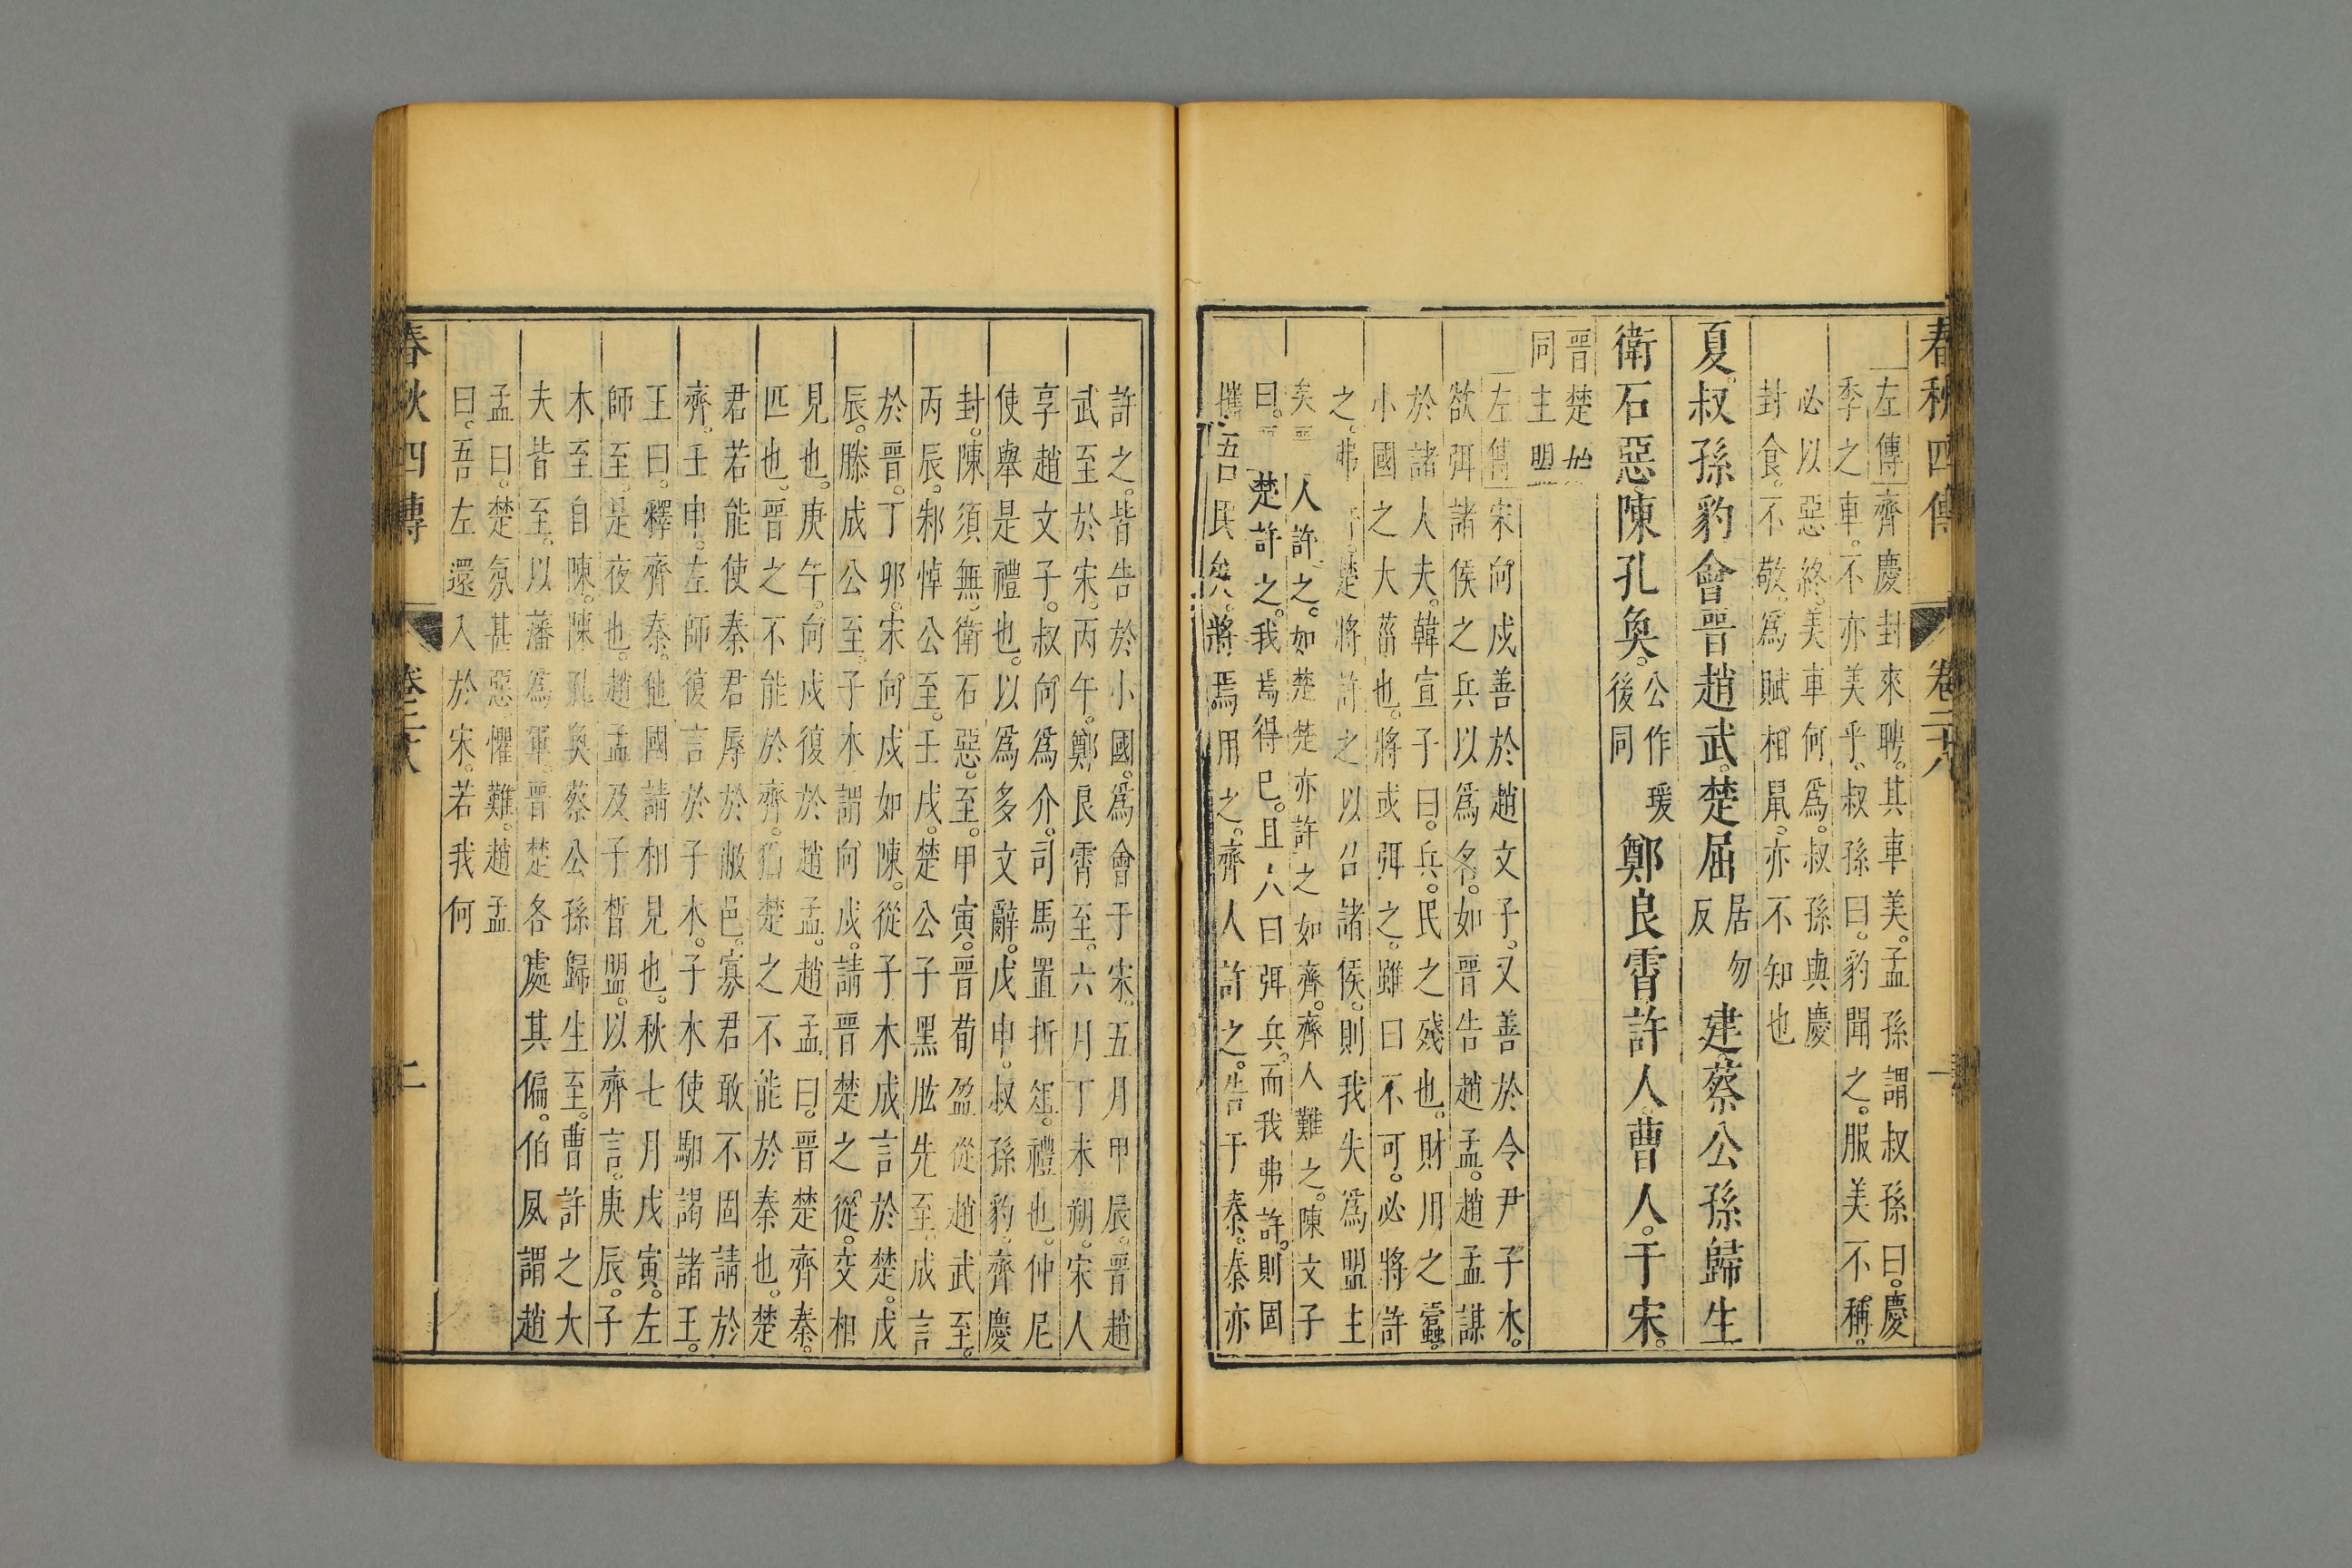 春秋四傳
卷二十六
一
左傳齊慶封來聘。其車美。孟孫謂叔孫曰。慶
季之車。不亦美乎。叔孫曰。豹聞之。服美不稱。
必以惡終。美車何爲。叔孫與慶
封食。不敬。爲賦相鼠。亦不知也
夏。叔孫豹會晉趙武。楚屈居勿反建。蔡公孫歸生
衛石惡。陳孔奐。公作瑗後同鄭良霄許人曹人。于宋。
晉楚始
同主盟
左傳宋向戌善於趙文子。又善於令尹子木。
欲弭諸侯之兵以爲名。如晉告趙孟。趙孟謀
於諸大夫。韓宣子曰。兵。民之殘也。財用之蠹。
小國之大菑也。將或弭之。雖曰不可。必將許
之。弗許。楚將許之以召諸侯。則我失爲盟主
矣 人許之。如楚楚亦許之如齊。齊人難之。陳文子
曰。 楚許之。我焉得已。且人曰弭兵。而我弗許。則固
攜吾民矣。將焉用之。齊人許之。告于秦。秦亦
許之。皆告於小國。爲會于宋。五月甲辰。晉趙
武至於宋。丙午。鄭良霄至。六月丁未朔。宋人
享趙文子。叔向爲介。司馬置折俎。禮也。仲尼
使舉是禮也。以爲多文辭。戊申。叔孫豹。齊慶
封。陳須無。衛石惡。至。甲寅。晉荀盈從趙武至。
丙辰。邾悼公至。壬戌。楚公子黑肱先至。成言
於晉。丁卯。宋向戌如陳。從子木成言於楚。戊
辰。滕成公至。子木謂向戌。請晉楚之從。交相
見也。庚午。向戌復於趙孟。趙孟曰。晉楚齊秦。
匹也。晉之不能於齊。猶楚之不能於秦也。楚
君若能使秦君辱於敝邑。寡君敢不固請於
齊。壬申。左師復言於子木。子木使馹謁諸王。
王曰。釋齊秦。他國請相見也。秋七月戊寅。左
師至。是夜也。趙孟及子晳盟。以齊言。庚辰。子
木至自陳。陳孔奐蔡公孫歸生至。曹許之大
夫皆至。以藩爲軍。晉楚各處其偏。伯夙謂趙
孟曰。楚氛甚惡。懼難。趙孟
曰。吾左還入於宋。若我何
春秋四傳
卷二十六
二